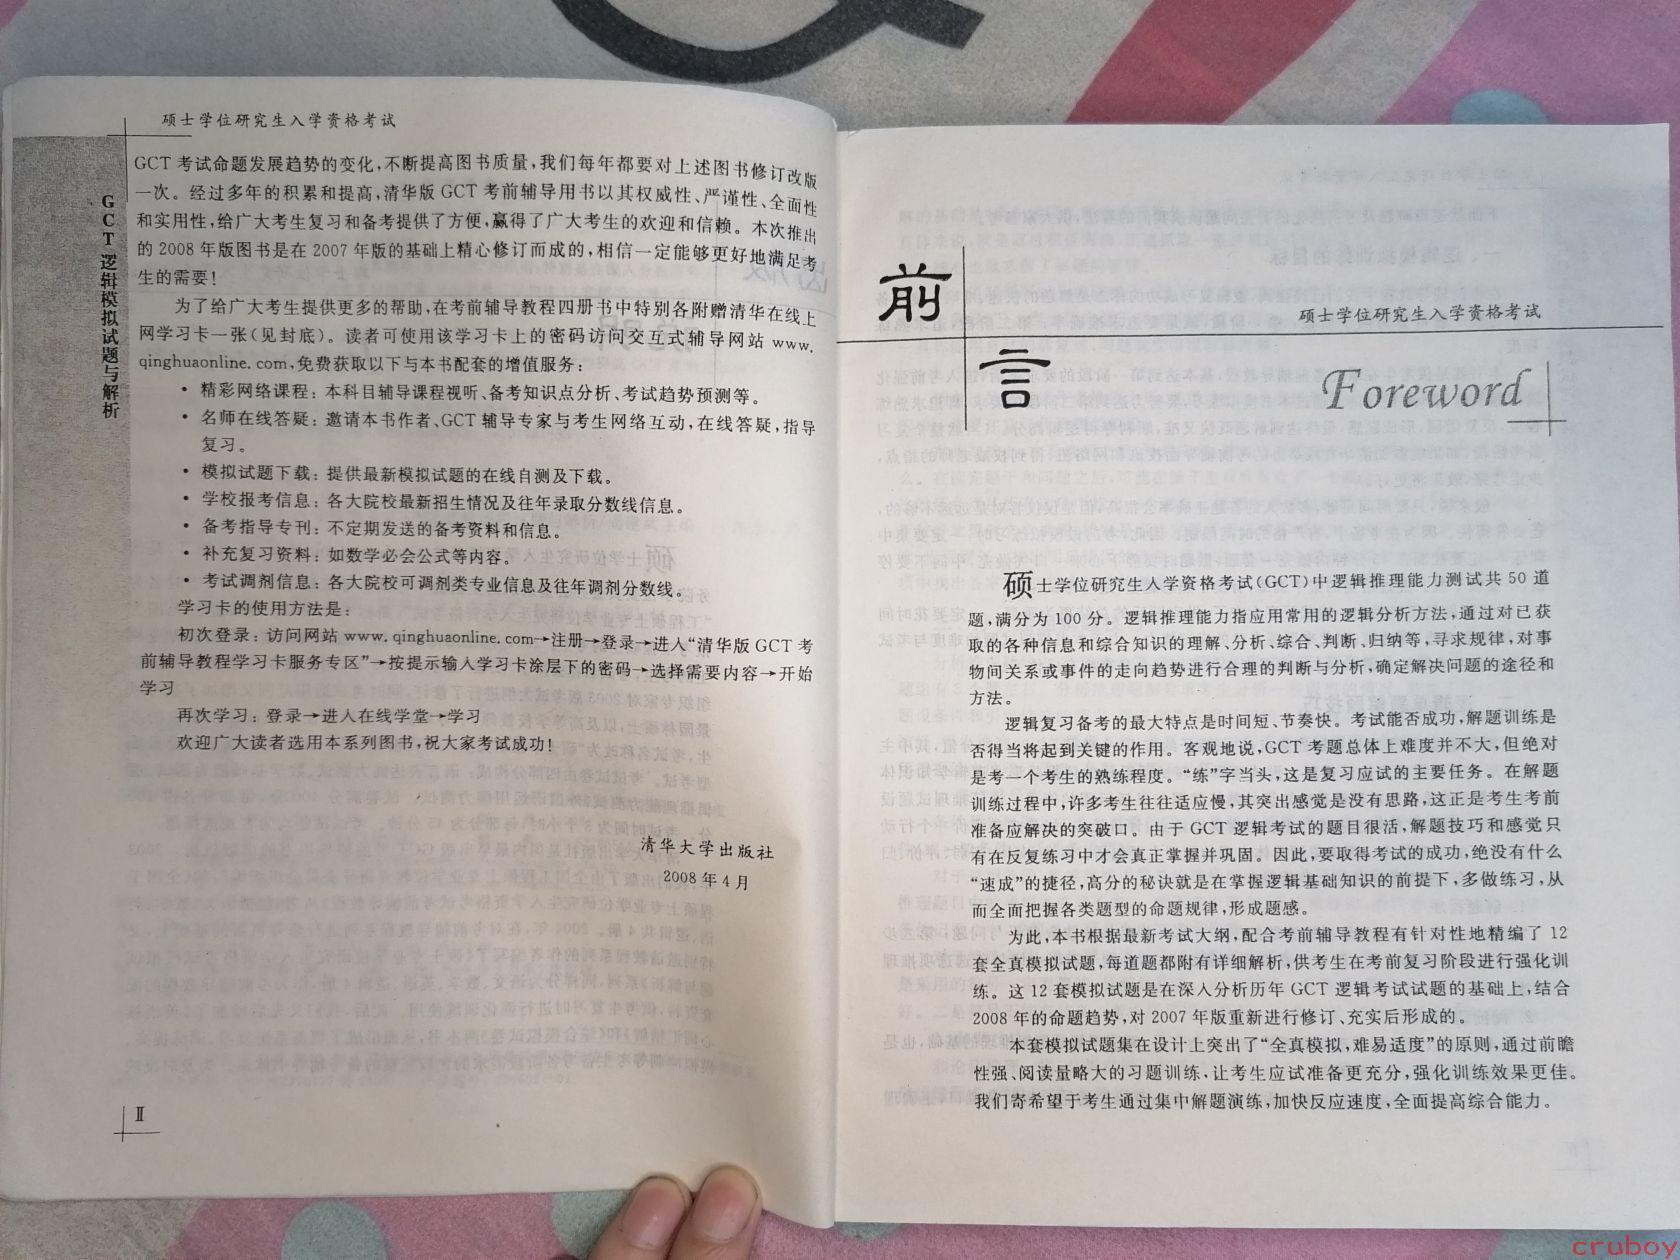 硕士学位研究生入学资格考试
GCT逻辑模拟试题与解析
GCT 考试命题发展趋势的变化,不断提高图书质量,我们每年都要对上述图书修订改版
一次。经过多年的积累和提高,清华版 GCT 考前辅导用书以其权威性、严谨性、全面性
和实用性,给广大考生复习和备考提供了方便,赢得了广大考生的欢迎和信赖。本次推出
的 2008 年版图书是在 2007 年版的基础上精心修订而成的,相信一定能够更好地满足考
生的需要!
为了给广大考生提供更多的帮助,在考前辅导教程四册书中特别各附赠清华在线上
网学习卡一张(见封底)。读者可使用该学习卡上的密码访问交互式辅导网站 www.
qinghuaonline.com,免费获取以下与本书配套的增值服务:
• 精彩网络课程:本科目辅导课程视听、备考知识点分析、考试趋势预测等。
• 名师在线答疑:邀请本书作者、GCT 辅导专家与考生网络互动,在线答疑,指导
复习。
• 模拟试题下载:提供最新模拟试题的在线自测及下载。
• 学校报考信息:各大院校最新招生情况及往年录取分数线信息。
• 备考指导专刊:不定期发送的备考资料和信息。
• 补充复习资料:如数学必会公式等内容。
• 考试调剂信息:各大院校可调剂类专业信息及往年调剂分数线。
学习卡的使用方法是:
初次登录:访问网站 www.qinghuaonline.com→注册→登录→进入“清华版 GCT 考
前辅导教程学习卡服务专区”→按提示输入学习卡涂层下的密码→选择需要内容→开始
学习
再次学习:登录→进入在线学堂→学习
欢迎广大读者选用本系列图书,祝大家考试成功!
清华大学出版社
2008 年 4 月
Ⅱ
前言
硕士学位研究生入学资格考试
Foreword
硕士学位研究生入学资格考试(GCT)中逻辑推理能力测试共 50 道
题,满分为 100 分。逻辑推理能力指应用常用的逻辑分析方法,通过对已获
取的各种信息和综合知识的理解、分析、综合、判断、归纳等,寻求规律,对事
物间关系或事件的走向趋势进行合理的判断与分析,确定解决问题的途径和
方法。
逻辑复习备考的最大特点是时间短、节奏快。考试能否成功,解题训练是
否得当将起到关键的作用。客观地说,GCT 考题总体上难度并不大,但绝对
是考一个考生的熟练程度。“练”字当头,这是复习应试的主要任务。在解题
训练过程中,许多考生往往适应慢,其突出感觉是没有思路,这正是考生考前
准备应解决的突破口。由于 GCT 逻辑考试的题目很活,解题技巧和感觉只
有在反复练习中才会真正掌握并巩固。因此,要取得考试的成功,绝没有什么
“速成”的捷径,高分的秘诀就是在掌握逻辑基础知识的前提下,多做练习,从
而全面把握各类题型的命题规律,形成题感。
为此,本书根据最新考试大纲,配合考前辅导教程有针对性地精编了 12
套全真模拟试题,每道题都附有详细解析,供考生在考前复习阶段进行强化训
练。这 12 套模拟试题是在深入分析历年 GCT 逻辑考试试题的基础上,结合
2008 年的命题趋势,对 2007 年版重新进行修订、充实后形成的。
本套模拟试题集在设计上突出了“全真模拟,难易适度”的原则,通过前瞻
性强、阅读量略大的习题训练,让考生应试准备更充分,强化训练效果更佳。
我们寄希望于考生通过集中解题演练,加快反应速度,全面提高综合能力。
cruboy